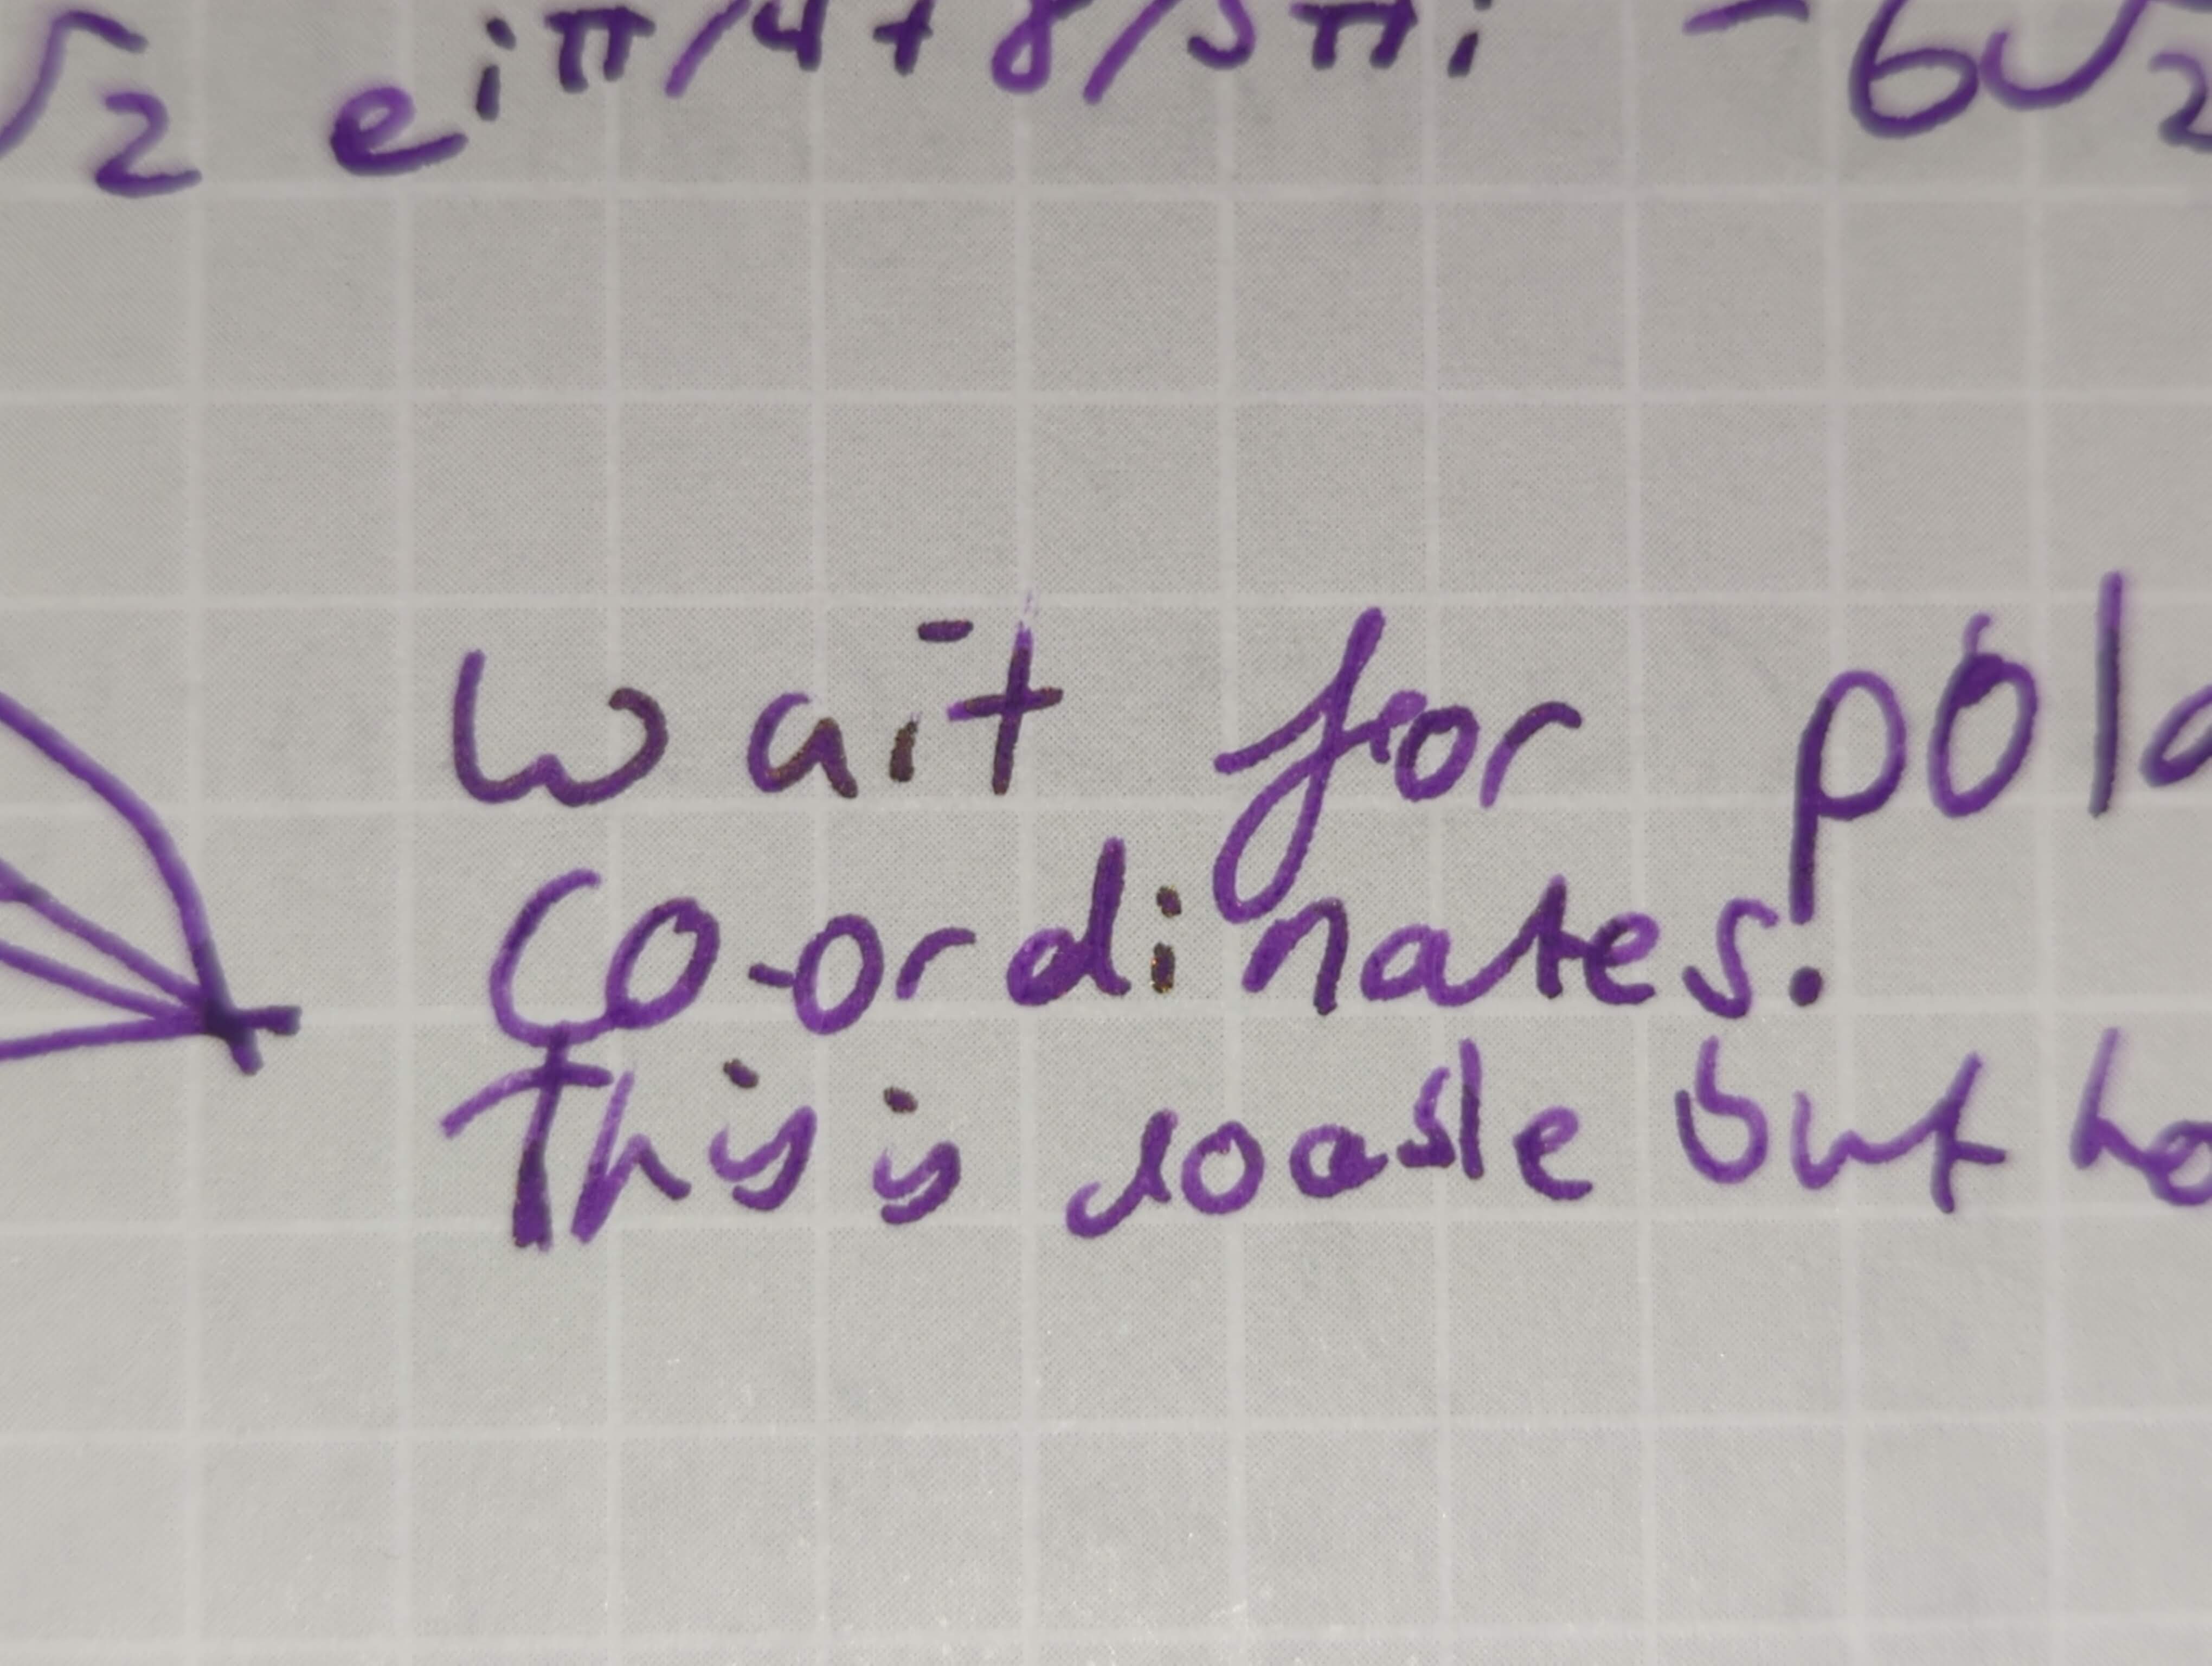 √2 e^iπ/4+8/5πi -6√2
wait for pola
co-ordinates.
This is doable but ho